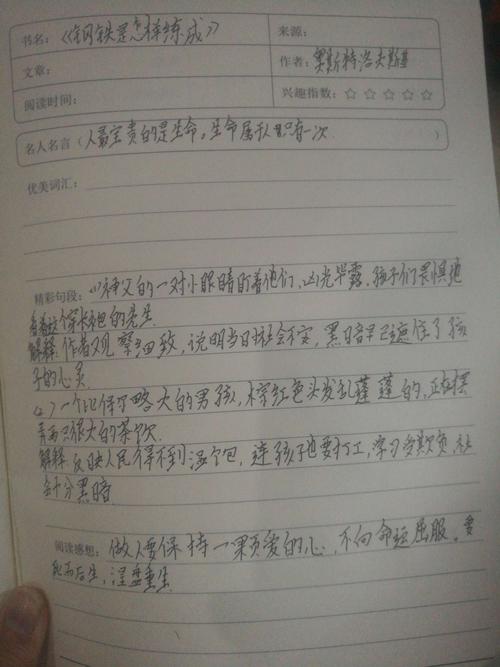 书名：《钢铁是怎样练成》
来源：
文章：
作者：奥斯特洛夫斯基
阅读时间：
兴趣指数：☆☆☆☆☆
名人名言（人最宝贵的是生命。生命属于人只有一次）
优美词汇：
精彩句段：(1)神父的一对小眼睛盯着他们，凶光毕露。孩子们畏惧地
看着这个穿长袍的先生
解释 作者观察细致，说明当时社会不安，黑暗早已遮住了孩
子的心灵
(2) 一个比保尔略大的男孩，棕红色头发乱蓬蓬的，正在摆
弄两只很大的茶炊
解释 反映人民得不到温饱，连孩子也要打工，
会十分黑暗
阅读感想：做人要保持一颗爱的心，不向命运屈服。要
死而后生，涅盘重生